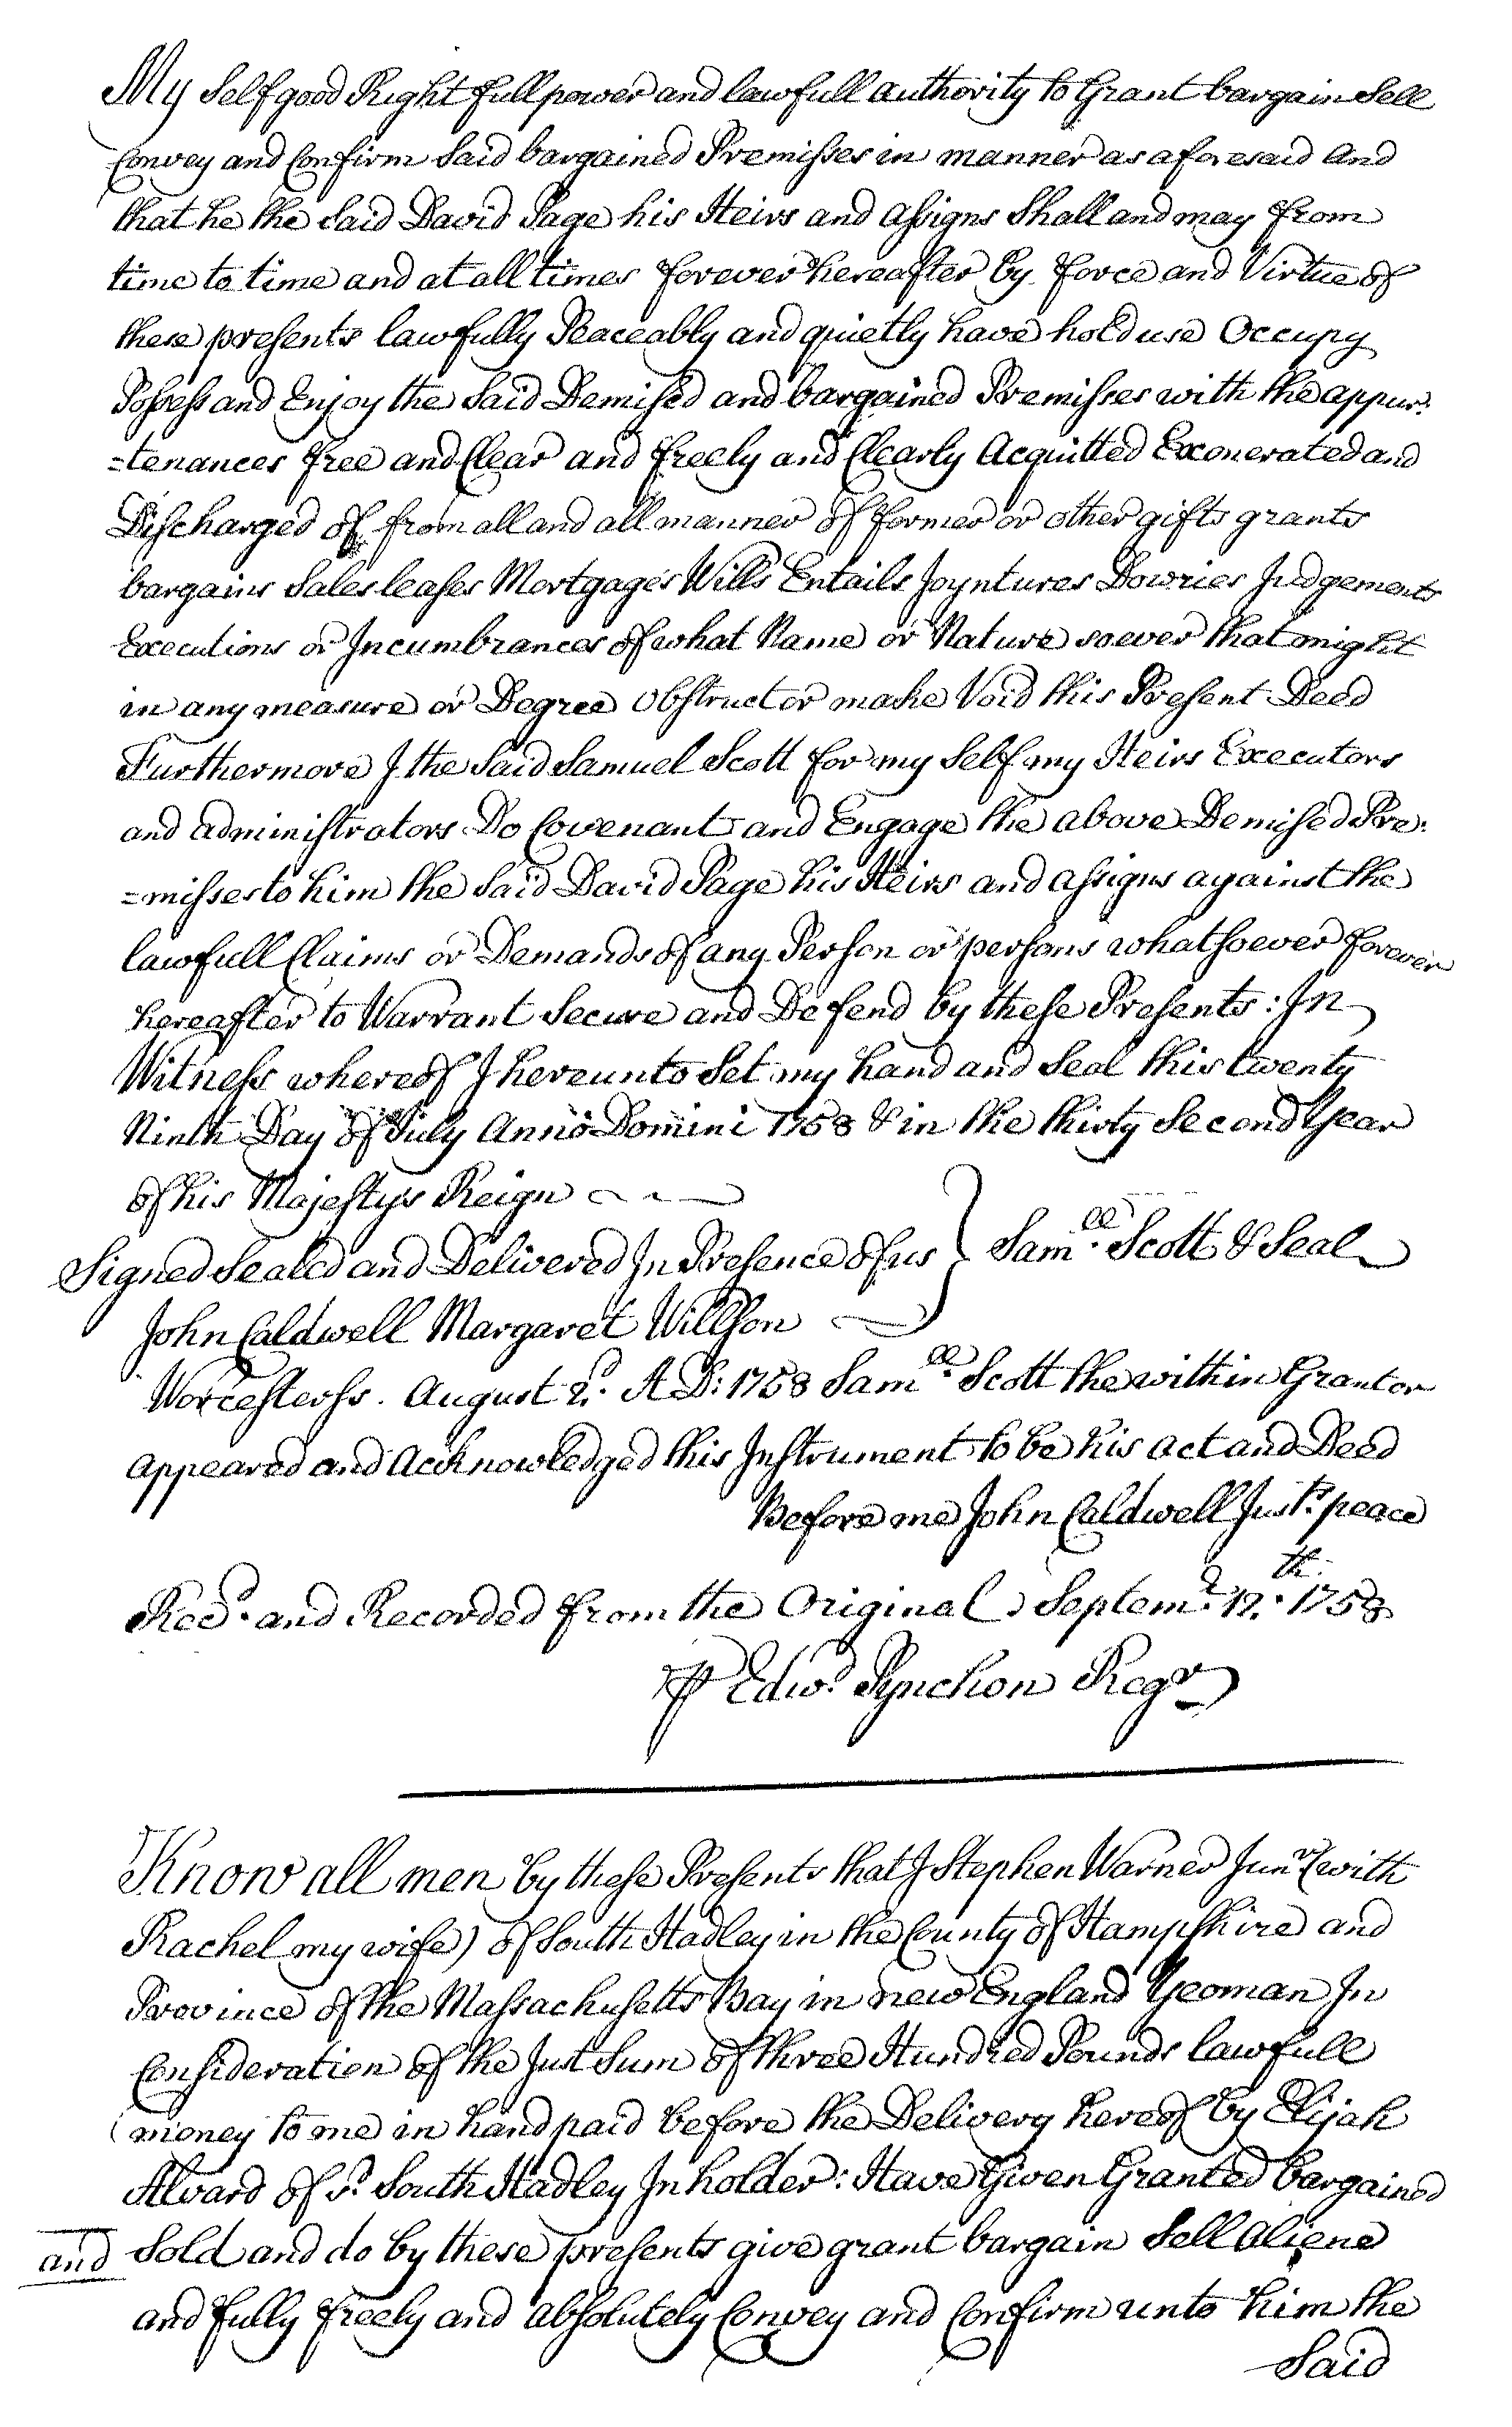 My Self good Right full power and lawfull authority to Grant bargain Sell
Convey and Confirm Said bargained Premisses in manner as aforesaid And
that he the Said David Page his Heirs and assigns Shall and may from
time to time and at all times forever hereafter by force and Virtue of
these presents lawfully Peaceably and quietly have hold use Occupy
Possess and Enjoy the Said Demised and bargained Premisses with the appur:
=tenances free and Clear and freely and Clearly Acquitted Exonerated and
Discharged of from all and all manner of former or other gifts grants
bargains Sales leases Mortgages Wills Entails Joyntures Dowries Judgements
Executions or Incumbrances of what Name or Nature soever that might
in any measure or Degree Obstruct or make Void this Present Deed
Furthermore I the Said Samuel Scott for my Self my Heirs Executors
and administrators Do Covenant and Engage the above Demised Pre:
=misses to him the Said David Page his Heirs and assigns against the
lawfull Claims or Demands of any Person or persons whatsoever forever
hereafter to Warrant Secure and Defend by these Presents: In
Witness whereof I hereunto Set my hand and Seal this twenty
Ninth Day of July Anno Domini 1758 & in the thirty Second Year
of his Majestys Reign
Signed Sealed and Delivered In Presence of us } Samll. Scott & Seal
John Caldwell Margaret Willson
Worcester ss. August 2d. A D: 1758 Samll. Scott the within Grantor
appeared and Acknowledged this Instrument to be his act and Deed
Before me John Caldwell Justs. peace
Recd. and Recorded from the Original Septemr. 12.th 1758
℘ Edwd. Pynchon Regr
Know all men by these Presents that I Stephen Warner Junr (with
Rachel my wife) of South Hadley in the County of Hampshire and
Province of the Massachusetts Bay in new England Yeoman In
Consideration of the Just Sum of three Hundred Pounds lawfull
money to me in hand paid before the Delivery hereof by Elijah
Alvard of sd. South Hadley Inholder: Have Given Granted bargained
and Sold and do by these presents give grant bargain Sell Aliene
and fully freely and absolutely Convey and Confirm unto him the
Said